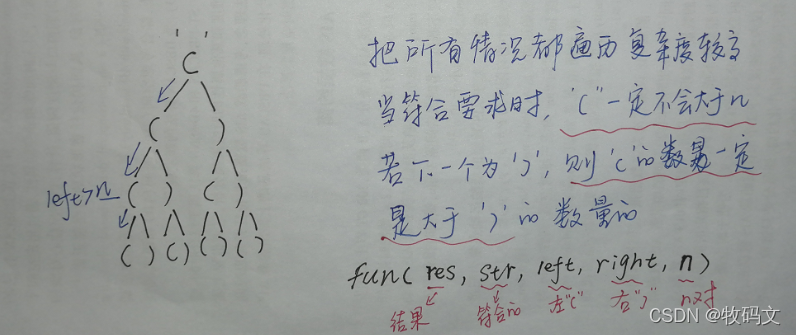 ' '
(
( )
( ) ( )
( ) ( ) ( ) ( )
left>n
把所有情况都遍历复杂度较高
当符合要求时，'('一定不会大于n
若下一个为')'，则'('的数量一定
是大于')'的数量的
fun( res, str, left, right, n)
结果 符合的 左"(" 右")" n对
CSDN @牧码文